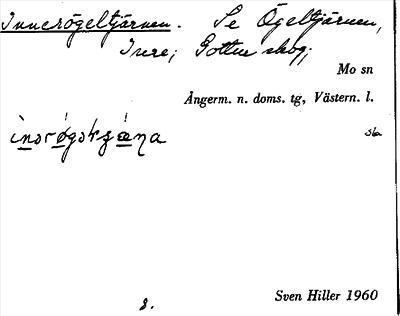 Innerögeltjärnen. Se Ögeltjärnen,
Inre; Gottne skog;
Mo sn
Ångerm. n. doms. tg, Västern. l.
sta
Sven Hiller 1960